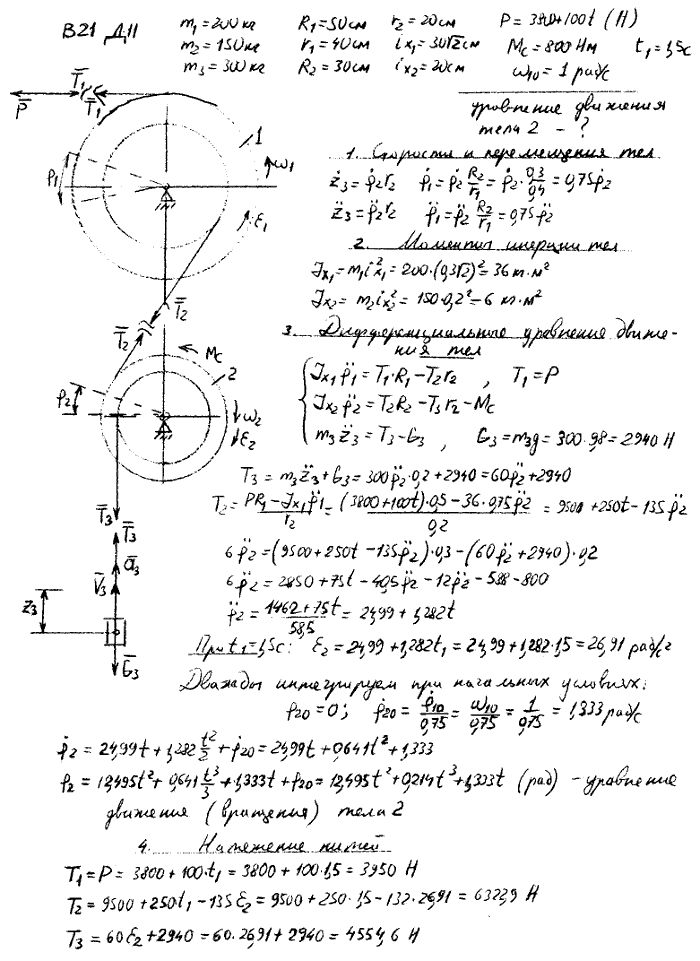 В21 Д11
m₁=200кг R₁=50см r₂=20см P=3800+100t (Н)
m₂=150кг r₁=40см iₓ₁=30√2см M_c=800Нм t₁=1,5с
m₃=300кг R₂=30см iₓ₂=20см ω₁₀=1 рад/с
уравнение движения
тела 2 - ?
T̄₁
P̄ T̄₁ 1
φ₁ ω₁
ε₁
T̄₂
T̄₂ M_c
2
φ₂ ω₂
ε₂
T̄₃
T̄₃
ā₃
V̄₃
z₃
Ḡ₃
1. Скорости и перемещения тел
ż₃=φ̇₂r₂ φ̇₁=φ̇₂ R₂/r₁=φ̇₂·0,3/0,4=0,75φ̇₂
z̈₃=φ̈₂r₂ φ̈₁=φ̈₂ R₂/r₁=0,75φ̈₂
2. Моменты инерции тел
Jₓ₁=m₁i²ₓ₁=200·(0,3√2)²=36 кг·м²
Jₓ₂=m₂i²ₓ₂=150·0,2²=6 кг·м²
3. Дифференциальные уравнения движе-
ния тел
Jₓ₁φ̈₁=T₁·R₁-T₂r₂ , T₁=P
Jₓ₂φ̈₂=T₂R₂-T₃r₂-M_c
m₃z̈₃=T₃-G₃ , G₃=m₃g=300·9,8=2940 Н
T₃=m₃z̈₃+G₃=300φ̈₂·0,2+2940=60φ̈₂+2940
T₂=(PR₁-Jₓ₁φ̈₁)/r₂=((3800+100t)·0,5-36·0,75φ̈₂)/0,2=9500+250t-135φ̈₂
6φ̈₂=(9500+250t-135φ̈₂)·0,3-(60φ̈₂+2940)·0,2
6φ̈₂=2850+75t-40,5φ̈₂-12φ̈₂-588-800
φ̈₂=(1462+75t)/58,5=24,99+1,282t
При t₁=1,5с: ε₂=24,99+1,282t₁=24,99+1,282·1,5=26,91 рад/с²
Дважды интегрируем при начальных условиях:
φ₂₀=0; φ̇₂₀=φ̇₁₀/0,75=ω₁₀/0,75=1/0,75=1,333 рад/с
φ̇₂=24,99t+1,282 t²/2+φ̇₂₀=24,99t+0,641t²+1,333
φ₂=12,495t²+0,641 t³/3+1,333t+φ₂₀=12,495t²+0,214t³+1,333t (рад) - уравнение
движения (вращения) тела 2
4. Натяжение нитей
T₁=P=3800+100·t₁=3800+100·1,5=3950 Н
T₂=9500+250t₁-135ε₂=9500+250·1,5-132·26,91=6322,9 Н
T₃=60ε₂+2940=60·26,91+2940=4554,6 Н